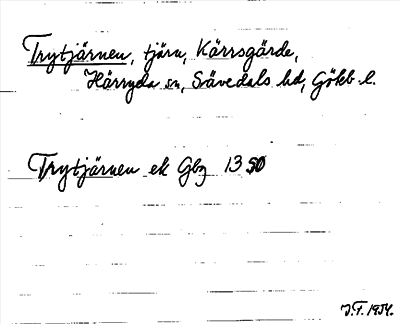 Trytjärnen, tjärn, Kärrsgärde,
Härryda sn, Sävedals hd, Göbb l.
Trytjärnen ek Gbg 13 50
J.F. 1954.